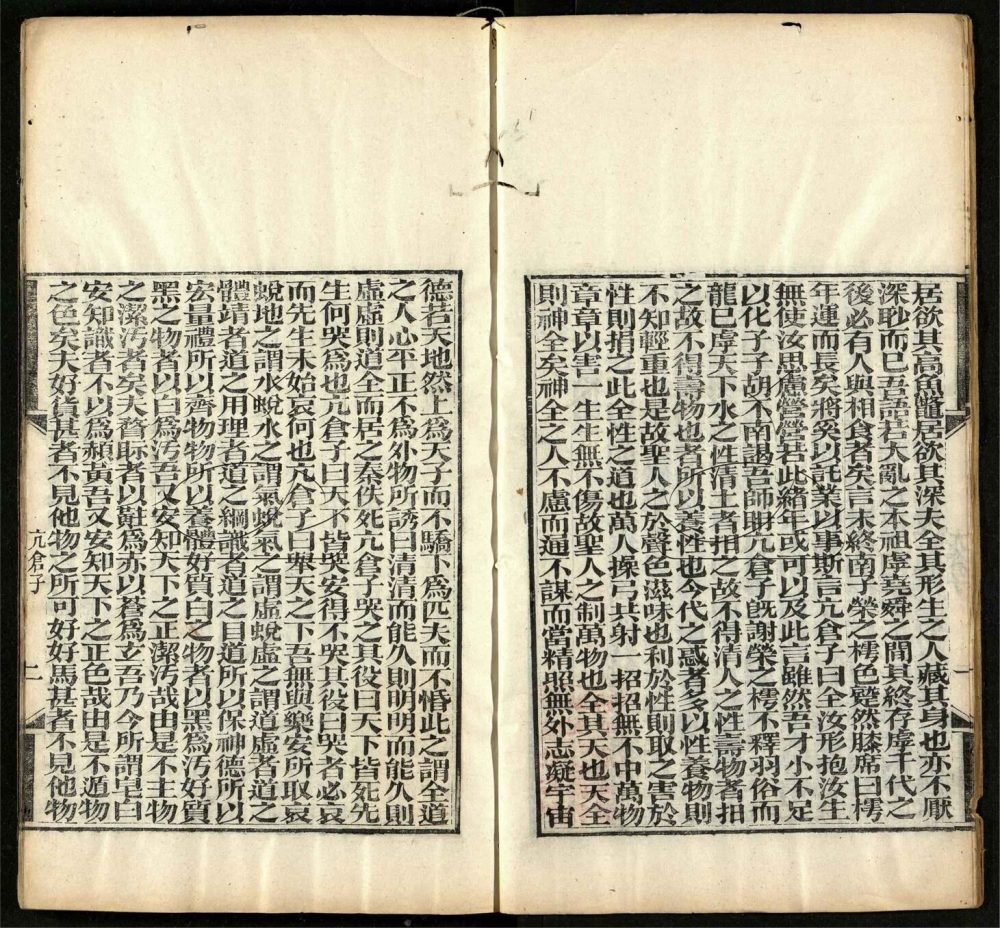 居欲其高魚鼈居欲其深夫全其形生之人藏其身也亦不厭
深眇而已吾語若大亂之本祖虖堯舜之間其終存虖千代之
後必有人與相食者矣言未終南子榮之樗色蹵然膝席曰樗
年運而長矣將奚以託業以事斯言亢倉子曰全汝形抱汝生
無使汝思慮營營若此緒年或可以及此言雖然吾才小不足
以化子子胡不南謁吾師聃亢倉子旣謝榮之樗不釋羽俗而
龍已虖天下水之性清土者抇之故不得清人之性壽物者抇
之故不得壽物也者所以養性也今代之惑者多以性養物則
不知輕重也是故聖人之於聲色滋味也利於性則取之害於
性則捐之此全性之道也萬人操弓共射一招招無不中萬物
章章以害一生生無不傷故聖人之制萬物也全其天也天全
則神全矣神全之人不慮而通不謀而當精照無外志凝宇宙
德若天地然上爲天子而不驕下爲匹夫而不惛此之謂全道
之人心平正不爲外物所誘曰清清而能久則明明而能久則
虛虛則道全而居之秦佚死亢倉子哭之其役曰天下皆死先
生何哭爲也亢倉子曰天下皆哭安得不哭其役曰哭者必哀
而先生未始哀何也亢倉子曰舉天之下吾無與樂安所取哀
蛻地之謂水蛻水之謂氣蛻氣之謂虛蛻虛之謂道虛者道之
體靖者道之用理者道之綱識者道之目道所以保神德所以
宏量禮所以齊物物所以養體好質白之物者以黑爲汚好質
黑之物者以白爲汚吾又安知天下之正潔汚哉由是不主物
之潔汚矣夫瞀眎者以黈爲亦以蒼爲玄吾乃今所謂皁白
安知識者不以爲赬黃吾又安知天下之正色哉由是不遁物
之色矣夫好貨甚者不見他物之所可好好馬甚者不見他物
亢倉子
二